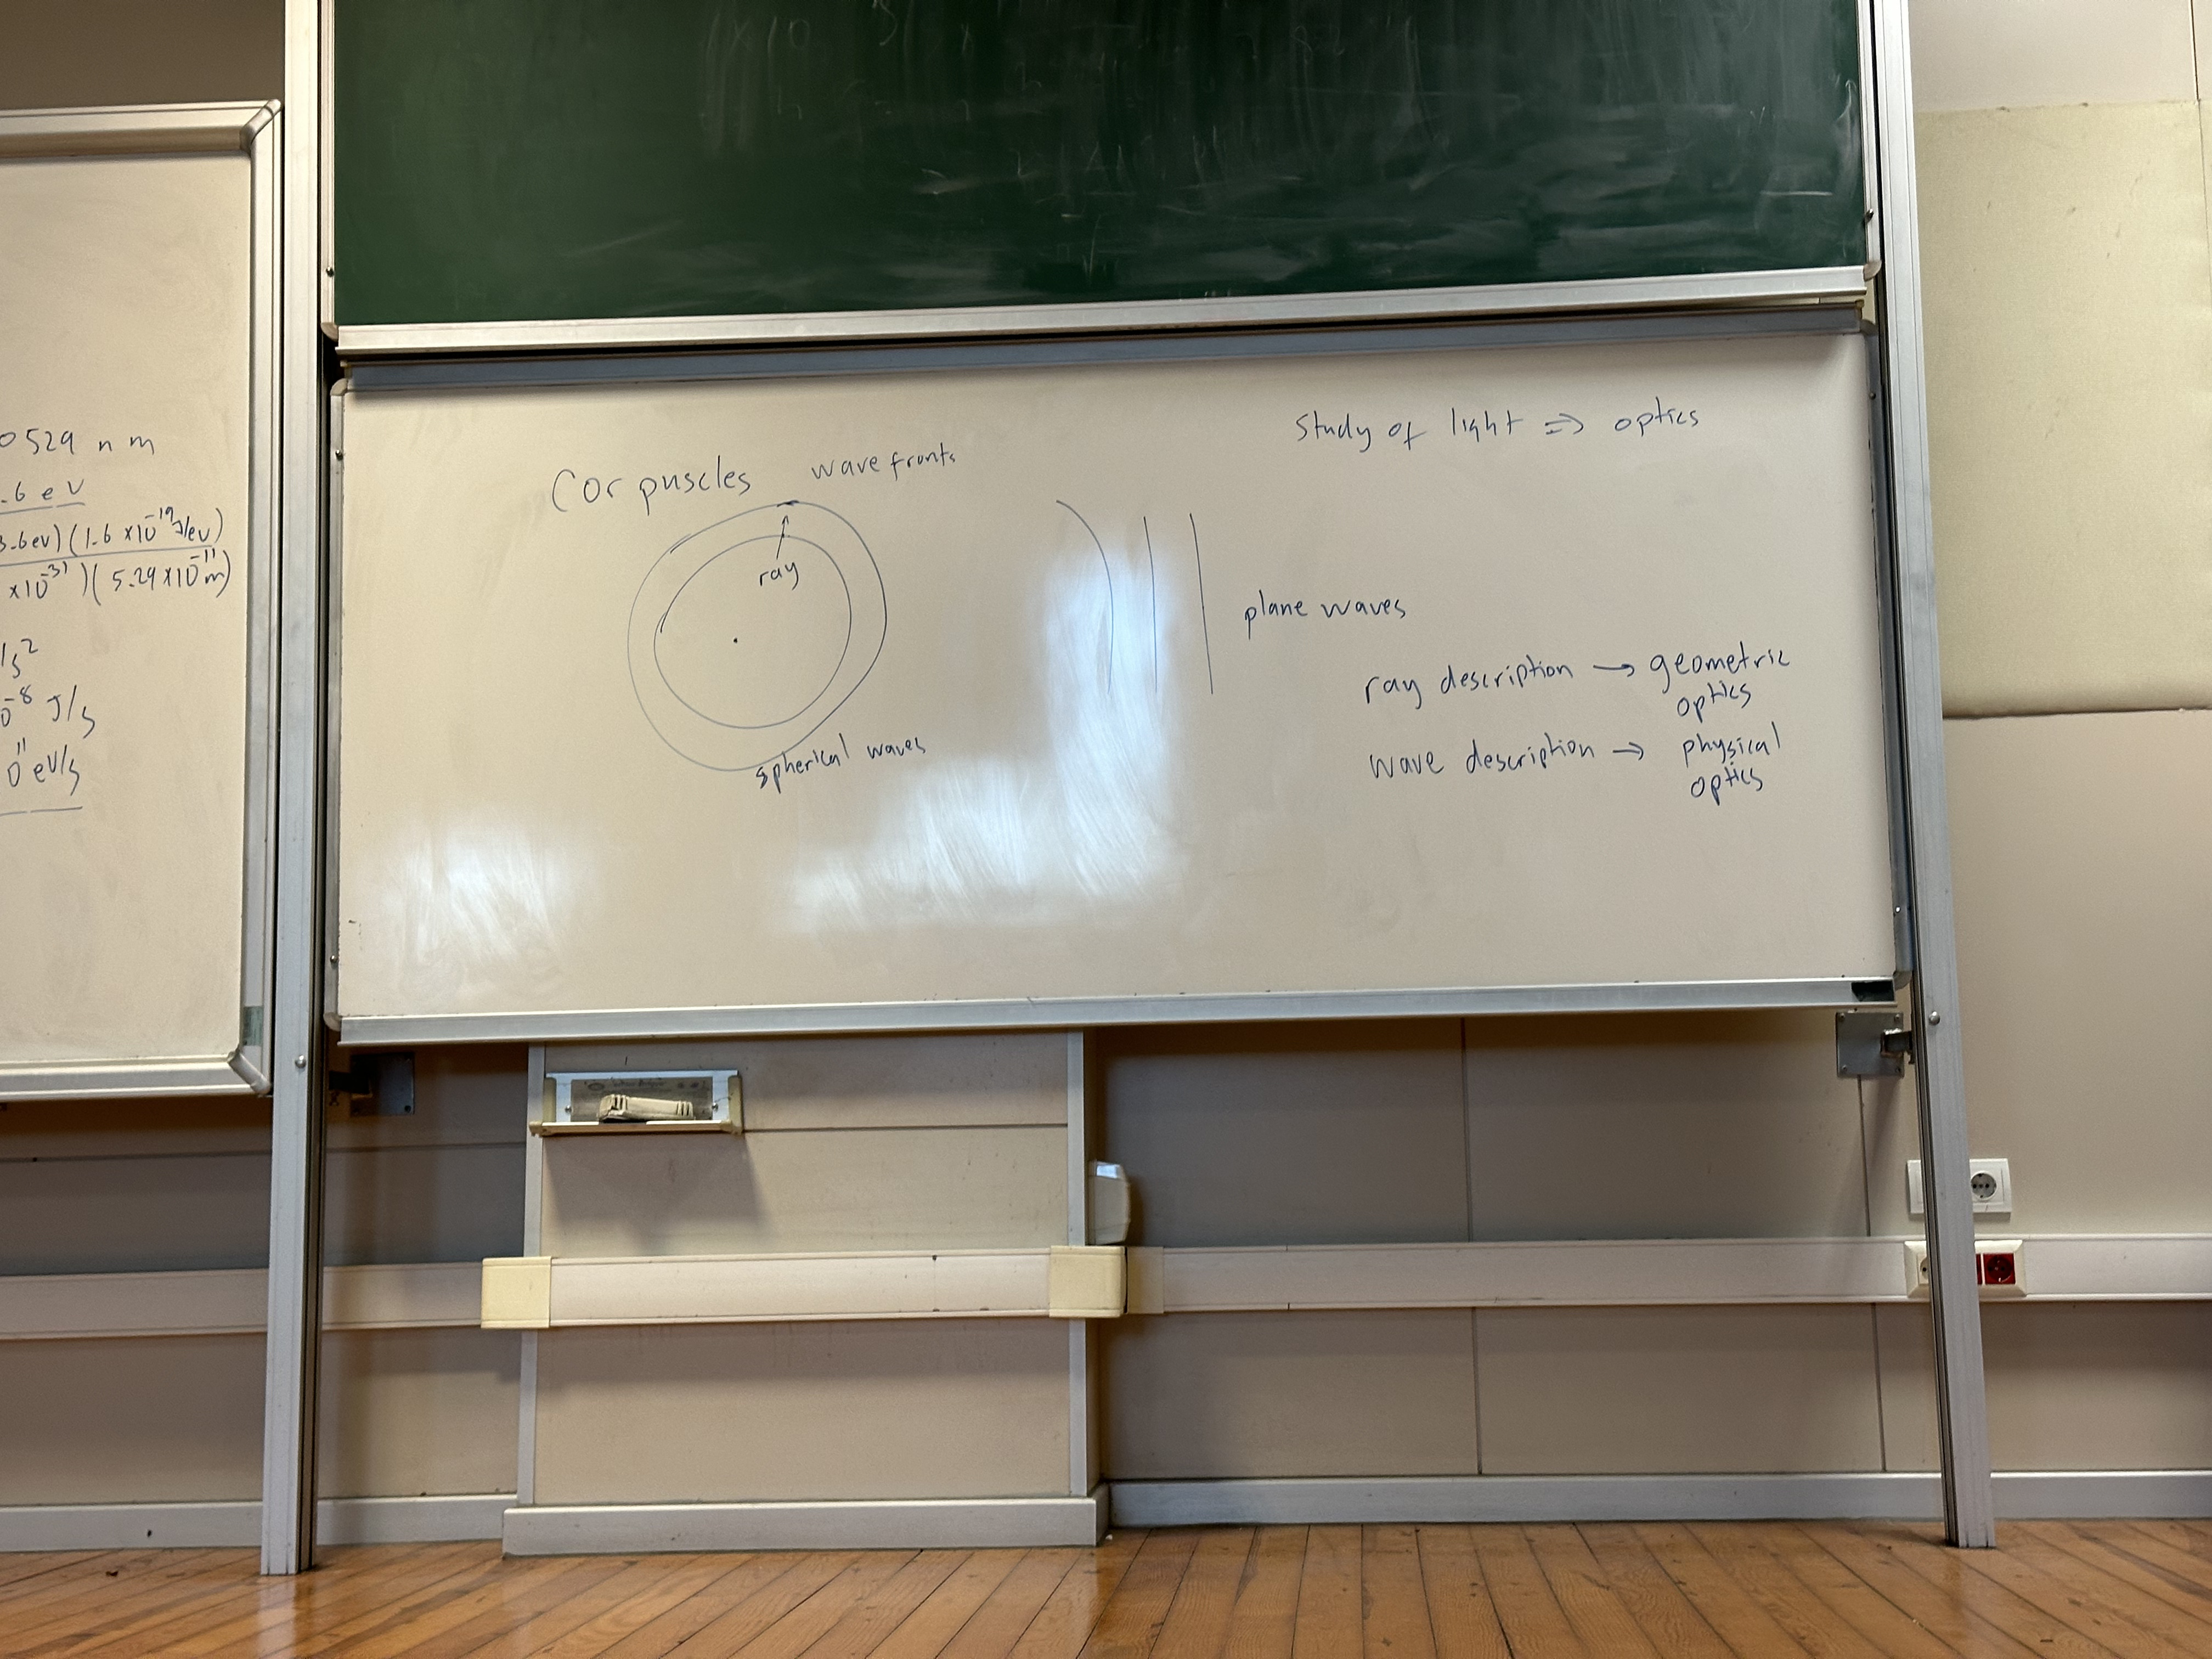 0529 nm
.6 eV
3.6 ev) (1.6 ×10⁻¹⁹ J/ev)
×10⁻³¹) (5.29 ×10⁻¹¹ m)
/s²
0⁻⁸ J/s
0¹¹ eV/s
Corpuscles wavefronts
ray
spherical waves
Study of light ⇒ optics
plane waves
ray description → geometric
optics
wave description → physical
optics